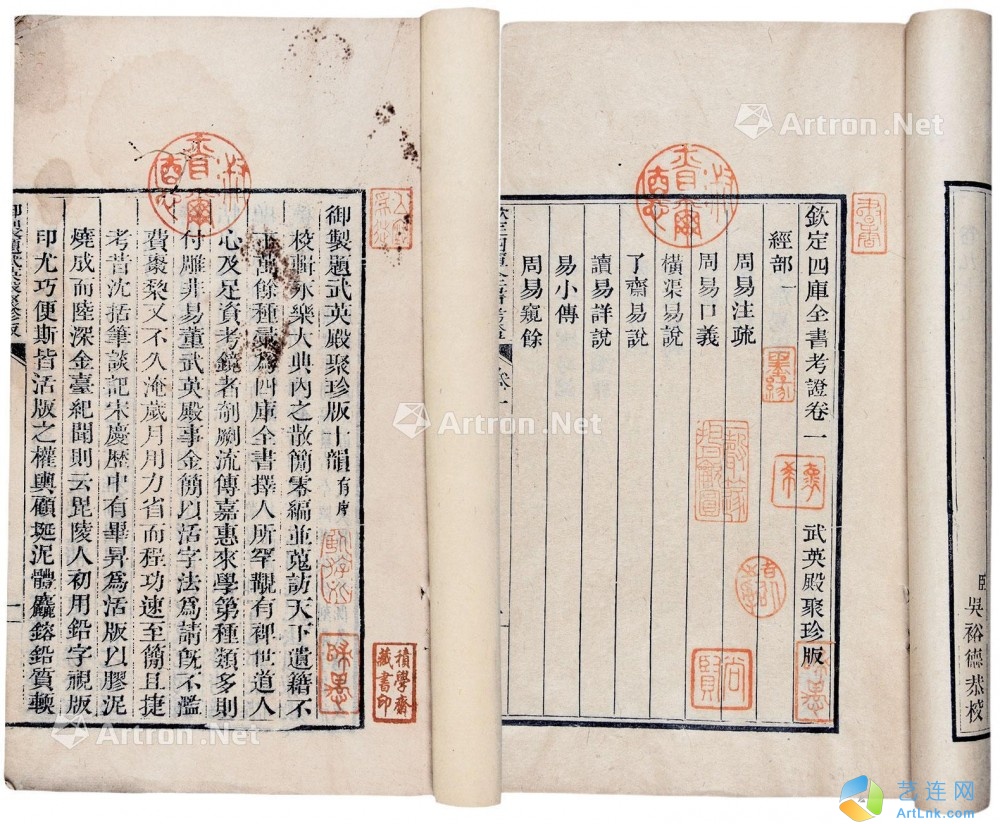 御製題武英殿聚珍版十韻有序
校輯永樂大典內之散簡零編並蒐訪天下遺籍不
下萬餘種彚為四庫全書擇人所罕覯有裨世道人
心及足資考鏡者剞劂流傳嘉惠來學第種類多則
付雕非易董武英殿事金簡以活字法為請旣不濫
費棗棃又不久淹歲月用力省而程功速至簡且捷
考昔沈括筆談記宋慶歷中有畢昇為活版以膠泥
燒成而陸深金臺紀聞則云毘陵人初用鉛字視版
印尤巧便斯皆活版之權輿顧埏泥體麤鎔鉛質輭
御製題武英殿聚珍版
一
積學齋
藏書印
欽定四庫全書考證卷一
武英殿聚珍版
經部
周易注疏
周易口義
橫渠易說
了齋易說
讀易詳說
易小傳
周易窺餘
欽定四庫全書考證
卷一
書香
墨緣
尚賢
臣吳裕德恭校
Artron.Net
Artron.Net
Artron.Net
Artron.Net
艺连网
ArtLnk.com